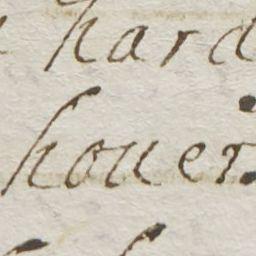 hard
houer